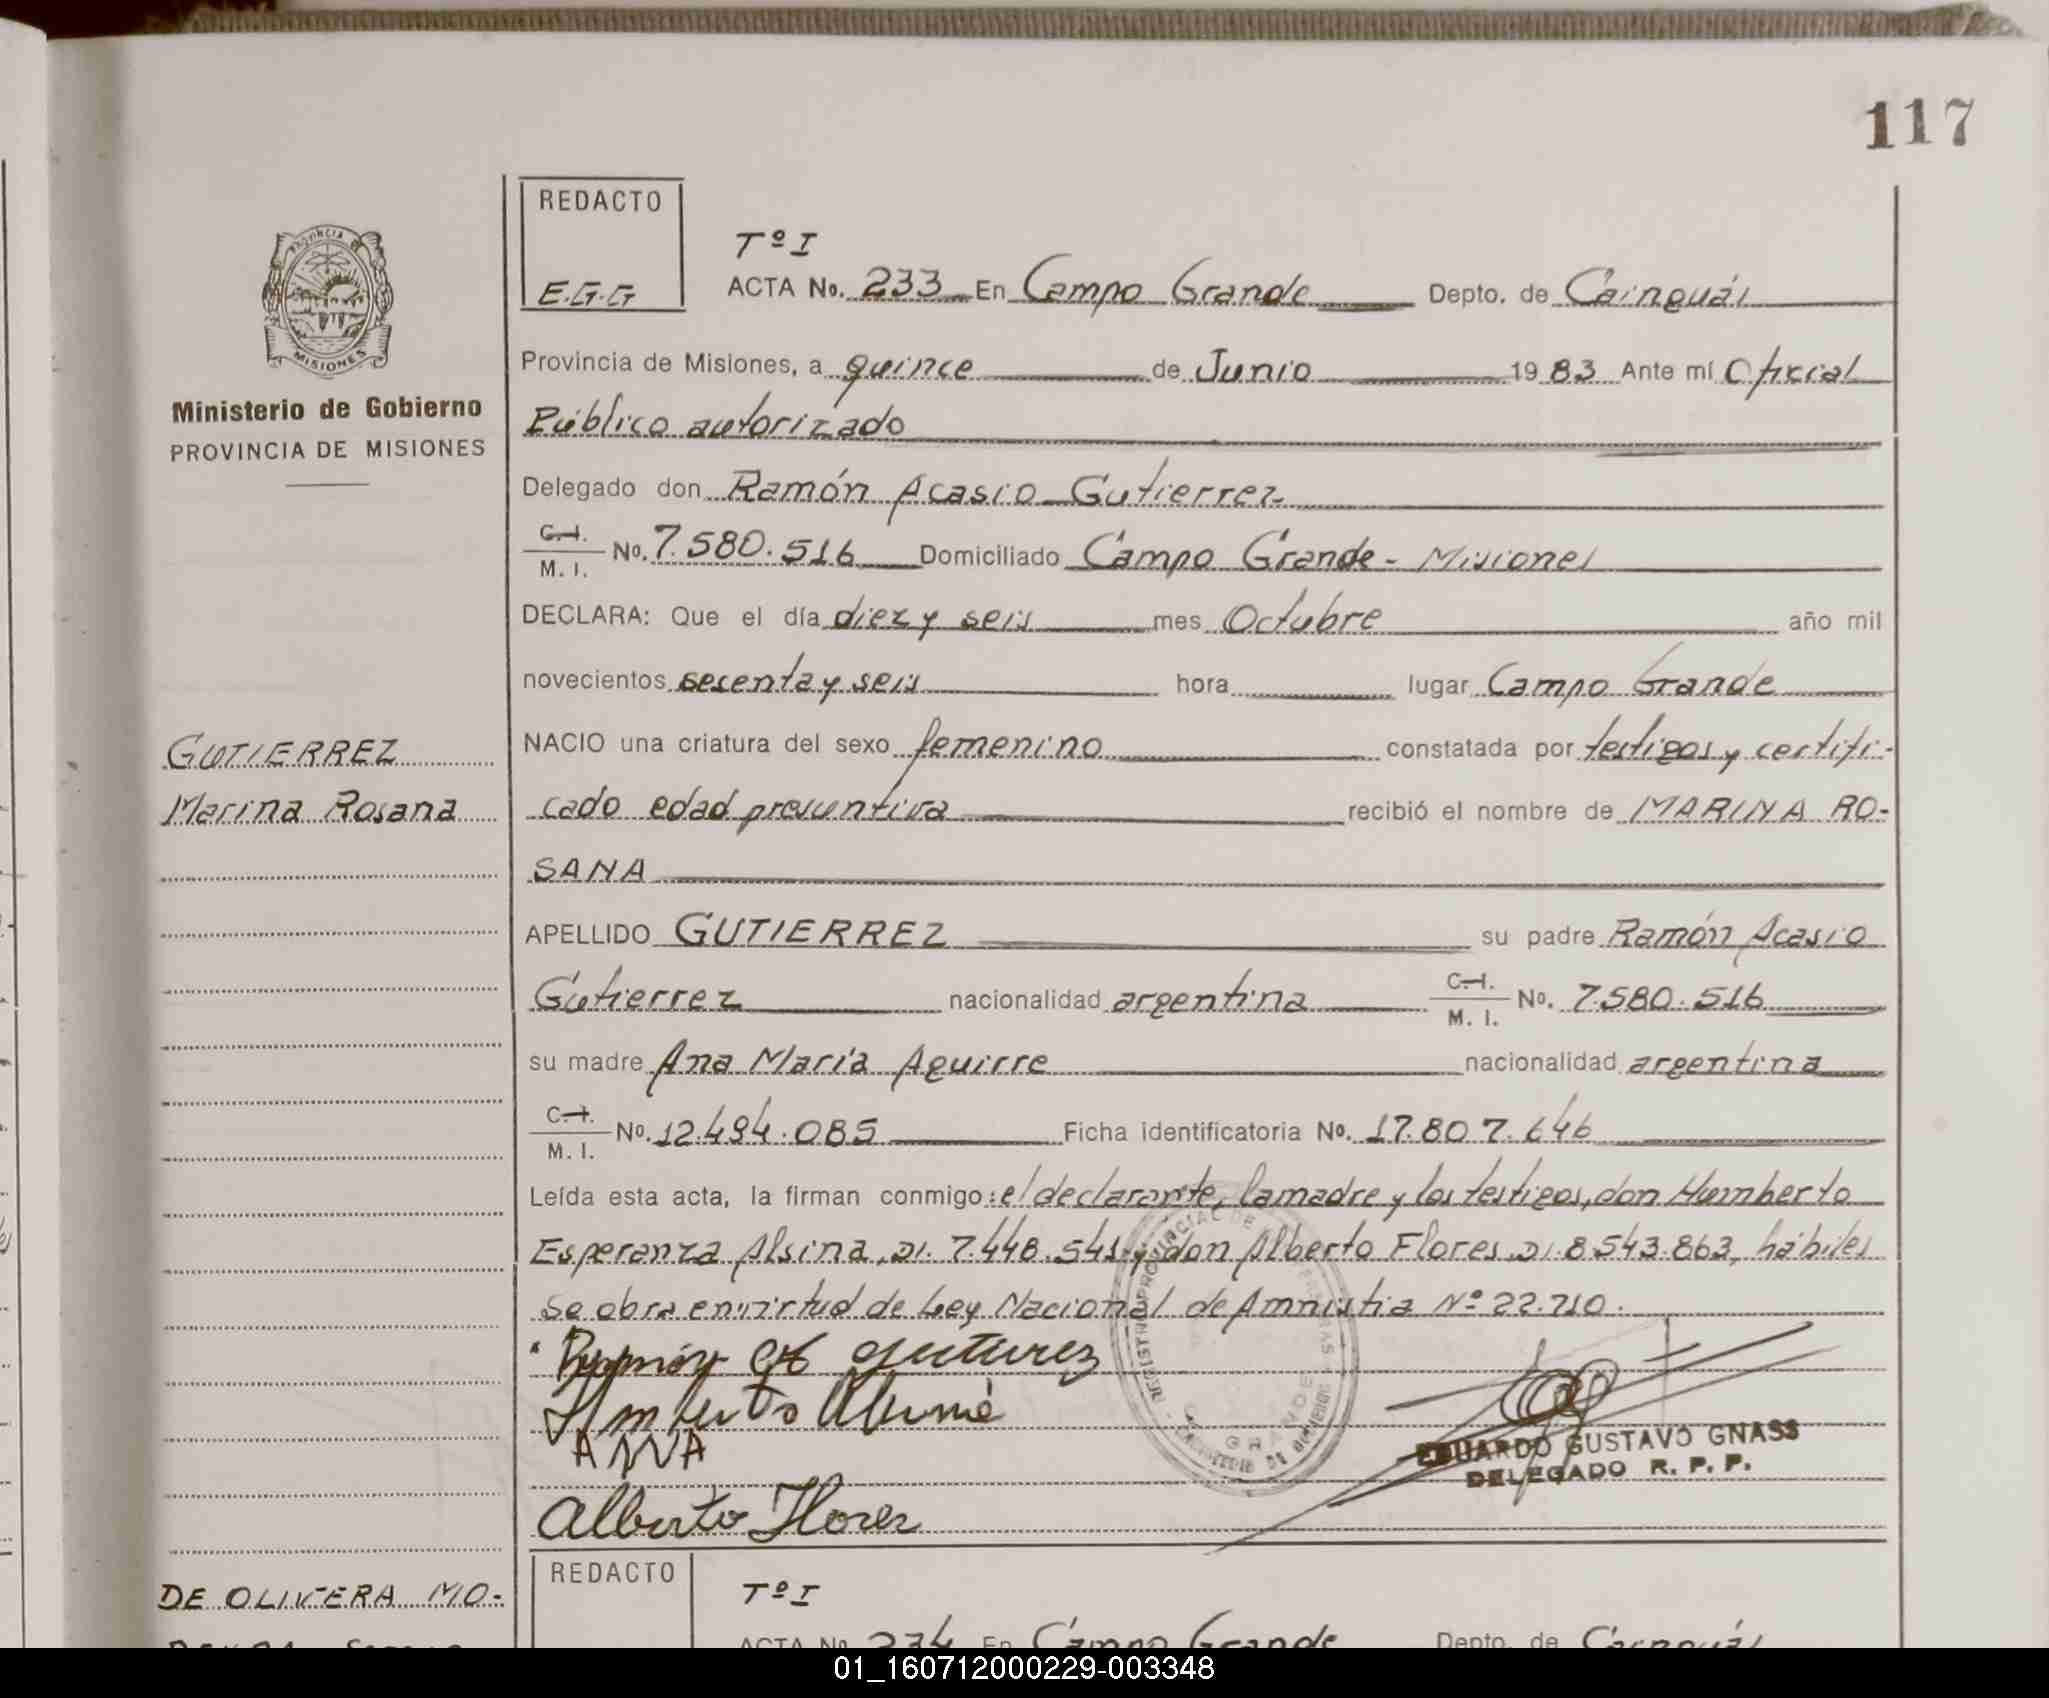 117
REDACTO
Tº I
E.G.G
ACTA No. 233 En Campo Grande Depto. de Cainguás
PROVINCIA DE
MISIONES
Provincia de Misiones, a quince de Junio 1983 Ante mí Oficial
Ministerio de Gobierno
PROVINCIA DE MISIONES
Público autorizado
Delegado don Ramón Acasio Gutierrez
C.I. M. I. No. 7.580.516 Domiciliado Campo Grande - Misiones
DECLARA: Que el día diez y seis mes Octubre año mil
novecientos sesenta y seis hora lugar Campo Grande
GUTIERREZ
Marina Rosana
NACIO una criatura del sexo femenino constatada por testigos y certifi-
cado edad presuntiva recibió el nombre de MARINA RO-
SANA
APELLIDO GUTIERREZ su padre Ramón Acasio
Gutierrez nacionalidad argentina C.I. M. I. No. 7.580.516
su madre Ana María Aguirre nacionalidad argentina
C.I. M. I. No. 12.494.085 Ficha identificatoria No. 17.807.646
Leída esta acta, la firman conmigo: el declarante, la madre y los testigos, don Humberto
Esperanza Alsina, DI. 7.448.541 y don Alberto Flores DI. 8.543.863, hábiles
Se obra en virtud de Ley Nacional de Amnistia Nº 22.710.
ANA
Alberto Flores
EDUARDO GUSTAVO GNASS
DELEGADO R. P. P.
DE OLIVERA MO-
REDACTO
Tº I
ACTA No 234 En Campo Grande Depto. de Cainguás
01_160712000229-003348